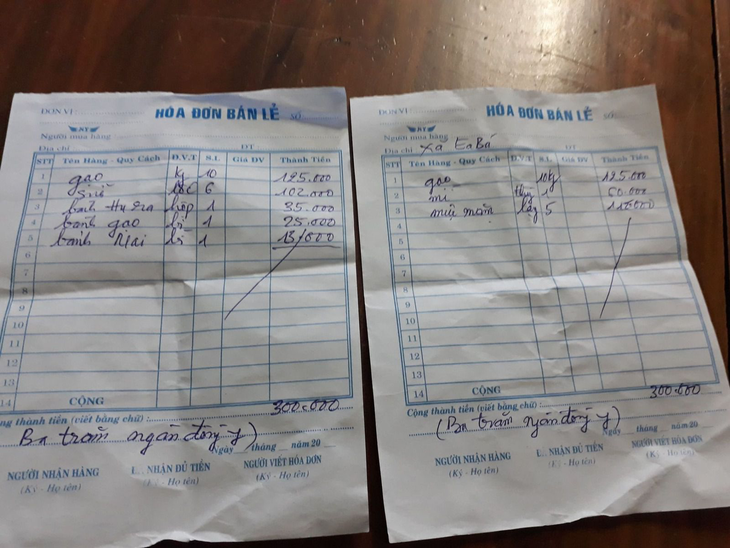 HÓA ĐƠN BÁN LẺ SỐ
ĐƠN VỊ
Người mua hàng
Địa chỉ ĐT
STT Tên Hàng - Quy Cách Đ.V.T S.L Giá ĐV Thành Tiền
1 gạo kg 10 125.000
2 6 102.000
3 bánh hộp 1 35.000
4 bánh gạo 25.000
5 bánh 1 13.000
6
7
8
9
10
11
12
13
14 CỘNG 300.000
Cộng thành tiền (viết bằng chữ) :
Ba trăm ngàn đồng y)
Ngày tháng năm 20
NGƯỜI NHẬN HÀNG NHẬN ĐỦ TIỀN NGƯỜI VIẾT HÓA ĐƠN
(Ký - Họ tên) Họ tên)
HÓA ĐƠN BÁN LẺ SỐ
ĐƠN VỊ
Người mua hàng
Địa chỉ Xã EaBá ĐT
STT Tên Hàng - Quy Cách Đ.V.T S.L Giá ĐV Thành Tiền
1 gạo 10kg 125.000
2 mì 1 60.000
3 mắm 5 115000
4
5
6
7
8
9
10
11
12
13
14 CỘNG 300.000
Cộng thành tiền (viết bằng chữ) :
(Ba trăm ngàn đồng y)
Ngày tháng năm 20
NGƯỜI NHẬN HÀNG NHẬN ĐỦ TIỀN NGƯỜI VIẾT HÓA ĐƠN
(Ký - Họ tên) Họ tên)